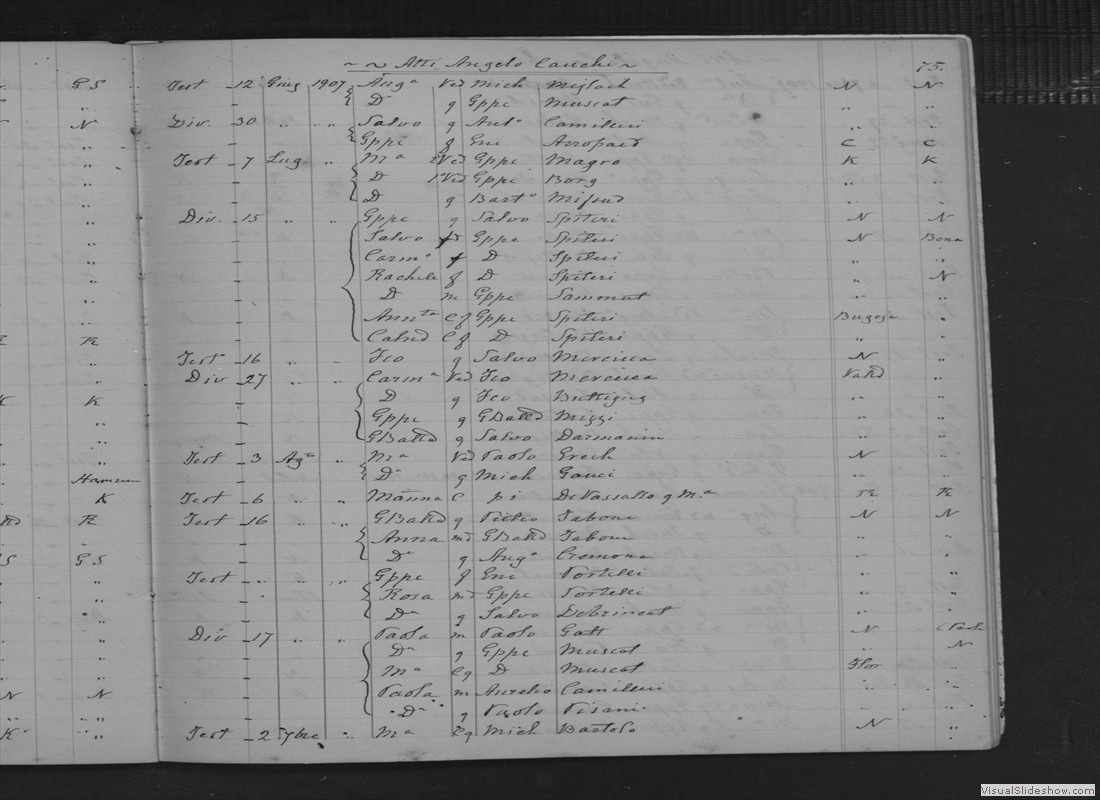 Atti Angelo Cauchi 75.
Test 12 Giug 1907 Angª Ved Mich Mifsud N N
D g Gppe Muscat " "
Div. 30 " " Salvo g Antº Camilleri " "
Gppe f Enc Azzopard C C
Test 7 Lug " Mª 2Ved Gppe Magro K K
D 1Ved Gppe Borg " "
D g Bartº Mifsud " "
Div. 15 " " Gppe g Salvo Spiteri N N
Salvo Gppe Spiteri N Bona
Carmº f D Spiteri " "
Rachele f D Spiteri " N
D m Gppe Sammut " "
Annta C f Gppe Spiteri "
C f D Spiteri " "
Test 16 " " Fco g Salvo Mercieca N "
Div 27 " " Carmª Ved Fco Mercieca Valld "
D g Fco Buttigieg " "
Gppe g GBatta Mizzi " "
GBatta g Salvo Darmanin " "
Test 3 Agº " Mª Ved Paolo Grech N "
Dª g Mich Gauci " "
Test 6 " " C pi De Vassallo g Mª
Test 16 " " GBatta g Pietro Tabone N N
Anna md GBatta Tabone " "
Dª g Angº Cremona " "
Test " " " Gppe f Enc Portelli " "
Rosa md Gppe Portelli " "
Dª g Salvo Debrincat " "
Div 17 " " Paola m Paolo Gatt N
Dª g Gppe Muscat " N
Mª Cg D Muscat Flor "
Paola m Aurelio Camilleri " "
Dª g Paolo Pisani " "
Test 2 7bre " Mª Cg Mich Bartolo N "
G S
N
K
Hamrun
K
G S
N N
K
VisualSlideshow.com